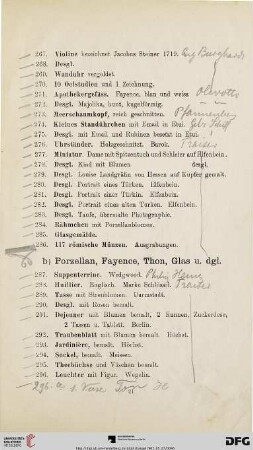 267. Violine bezeichnet Jacobus Steiner 1710.
268. Desgl.
269. Wanduhr vergoldet.
270. 10 Oelstudien und 1 Zeichnung.
271. Apothekergefäss. Fayence, blau und weiss
272. Desgl. Majolika, bunt, kugelförmig.
273. Meerschaumkopf, reich geschnitten.
274. Kleines Standührchen mit Email in Etui.
275. Desgl. mit Email und Rubinen besetzt in Etui.
276. Uhrständer. Holzgeschnitzt. Barok.
277. Miniatur. Dame mit Spitzentuch und Schleier auf Elfenbein.
278. Desgl. Kind mit Blumen desgl.
279. Desgl. Louise Landgräfin von Hessen auf Kupfer gemalt.
280. Desgl. Portrait eines Türken. Elfenbein.
281. Desgl. Portrait einer Türkin. Elfenbein.
282. Desgl. Portrait eines alten Türken. Elfenbein.
283. Desgl. Taufe, übermalte Photographie.
284. Rähmchen mit Porzellanblumen.
285. Glasgemälde.
286. 117 römische Münzen. Ausgrabungen.
b) Porzellan, Fayence, Thon, Glas u. dgl.
287. Suppenterrine. Wedgwood.
288. Huilier. Englisch. Marke Schlüssel.
289. Vasen mit Streublumen. Darmstadt.
290. Desgl. mit Rosen bemalt.
291. Dejeuner mit Blumen bemalt, 2 Kannen, Zuckerdose,
2 Tassen u. Tablett. Berlin.
292. Traubenblatt mit Blumen bemalt. Höchst.
293. Jardinière, bemalt. Höchst.
294. Sockel, bemalt. Meissen.
295. Theebüchse und Väschen bemalt.
296. Leuchter mit Figur. Wegelin.
21
DFG